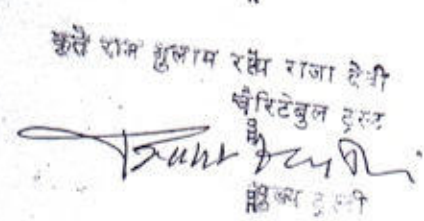 कृतै राम गुलाम राजा देवी
चैरिटेबुल ट्रस्ट
मुख्य ट्रस्टी